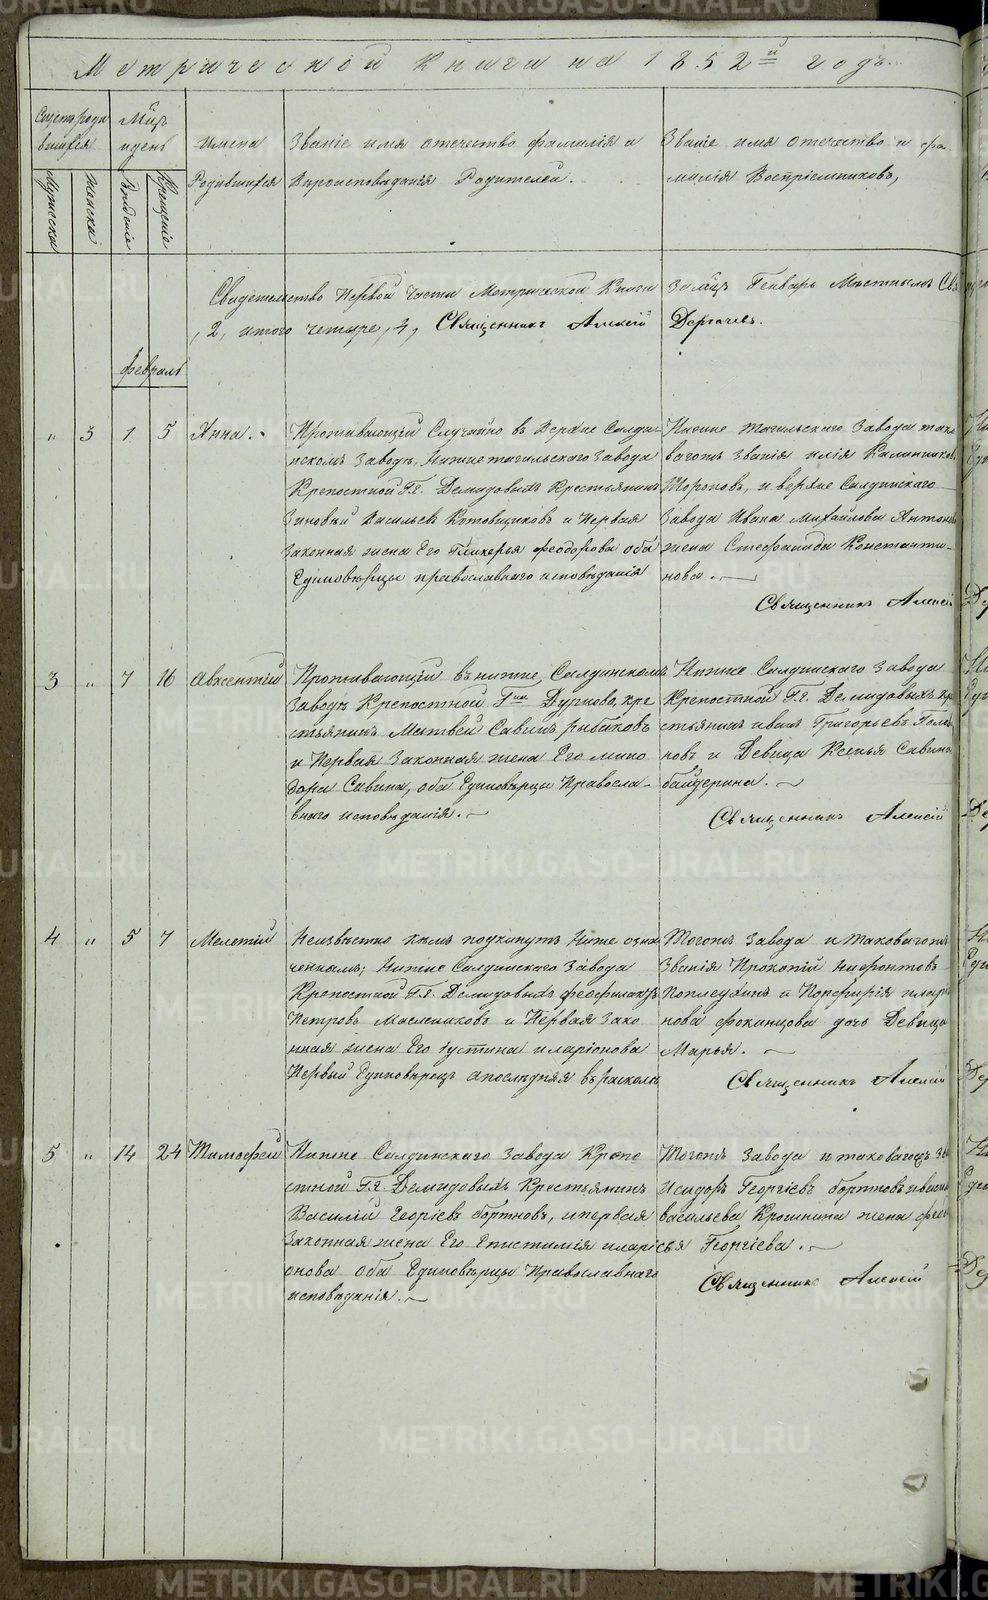 Метрической книги на 1852й годъ
Счетъ роди
вшихся
Мцъ
и день
Имена
Родившихся
Званіе имя отечество фамилія и
Вѣроисповѣданія Родителей.
Званіе имя отечество и фа
милія Воспріемниковъ,
Мужеска
Женска
Рожденіе
Крещеніе
Свидетельство Первой Части Метрической Книги за мцъ Генварь
, 2, итого четыре, 4, Священникъ Алексій Дергачевъ.
Февраль
" 3 1 5 Анна.
Проживающій Случайно въ Верхне Салди-
нскомъ Заводѣ, Нижнетагильскаго Завода
Крепостной Г.г. Демидовыхъ Крестьянинъ
Зиновій Васильевъ Котовщиковъ и Первая
Законная жена Его Гликерья Феодорова оба
Единовѣрцы православнаго исповѣданія
Нижне Тагильскаго Завода тако
вагожъ Званія Илія Калинниковъ
Тороповъ, и Верхне Салдинскаго
Завода Ивана Михайлова Антоно
жена Стефанида Константи-
нова.
Священникъ Алексій
3 " 7 16 Авксентій
Проживающій въ нижне Салдинскомъ
Заводѣ Крепостной Гжи Дурново, кре
стьянинъ Матвей Савинъ рыбаковъ
и Первая Законная жена Его мино
дора Савина, оба Единовѣрцы Правосла-
внаго исповѣданія.
Нижне Салдинскаго Завода
Крепостной Г.г. Демидовыхъ кре
стьянинъ иванъ Григорьевъ Голо
новъ и Девица Ксенья Савина
байдерина.
Священникъ Алексій
4 " 5 7 Мелетій
Неизвѣстно кѣмъ подкинутъ Ниже озна
ченнымъ; Нижне Салдинскаго Завода
Крепостной Г.г. Демидовыхъ феофилактъ
Петровъ Маслениковъ и Первая Зако
нная жена Его Іустина иларіонова
Первый Единовѣрецъ апослѣдняя въ расколѣ
Тогожъ Завода и таковагожъ
Званія Прокопій Нифонтовъ
Поплеухинъ и Порфирія илар
нова фокинцова дочь Девица
Марья.
Священникъ Алексій
5 " 14 24 Тимофей
Нижне Салдинскаго Завода Крепо
стной Г.г. Демидовыхъ Крестьянинъ
Василій Георгіевъ бортновъ, и первая
Законная жена Его Епистимія иларі
онова оба Единовѣрцы Православнаго
исповѣданія.
Тогожъ Завода и таковагожъ зва
Исидоръ Георгіевъ бортновъ и
васильева Крошнина жена
Георгіева.
Священникъ Алексій
METRIKI.GASO-URAL.RU